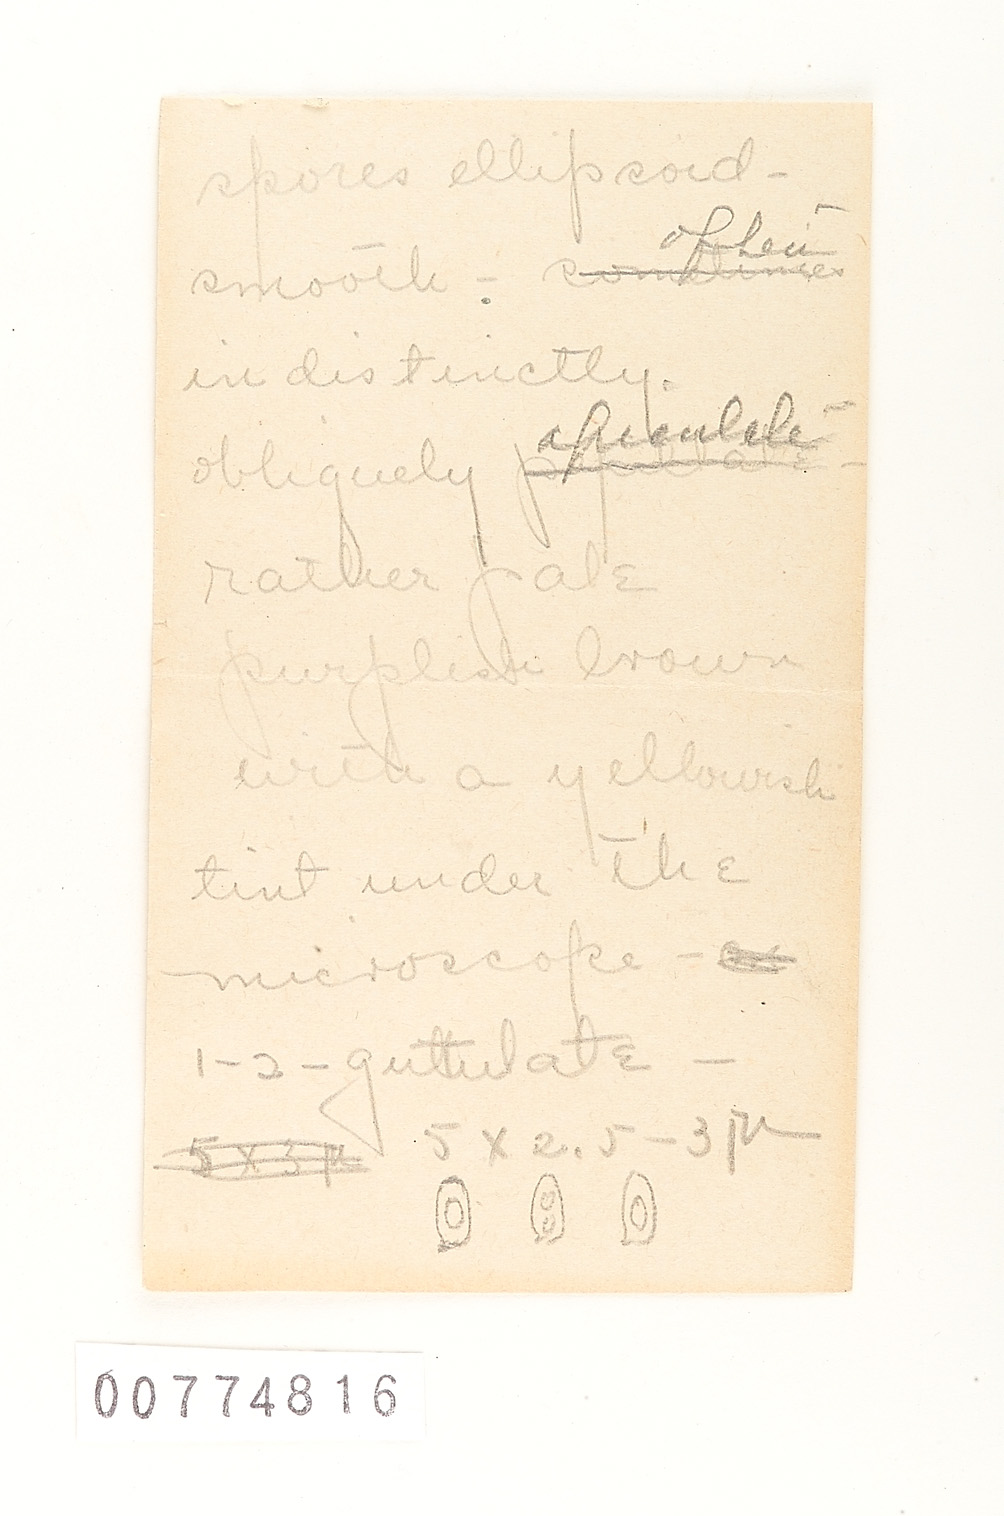 spores ellipsoid -
smooth - often
sometimes
indistinctly.
apiculate -
obliquely papillate -
rather pale
purplish brown
with a yellowish
tint under the
microscope -
1-2-guttulate -
5 x 3 µ 5 x 2.5-3 µ
00774816